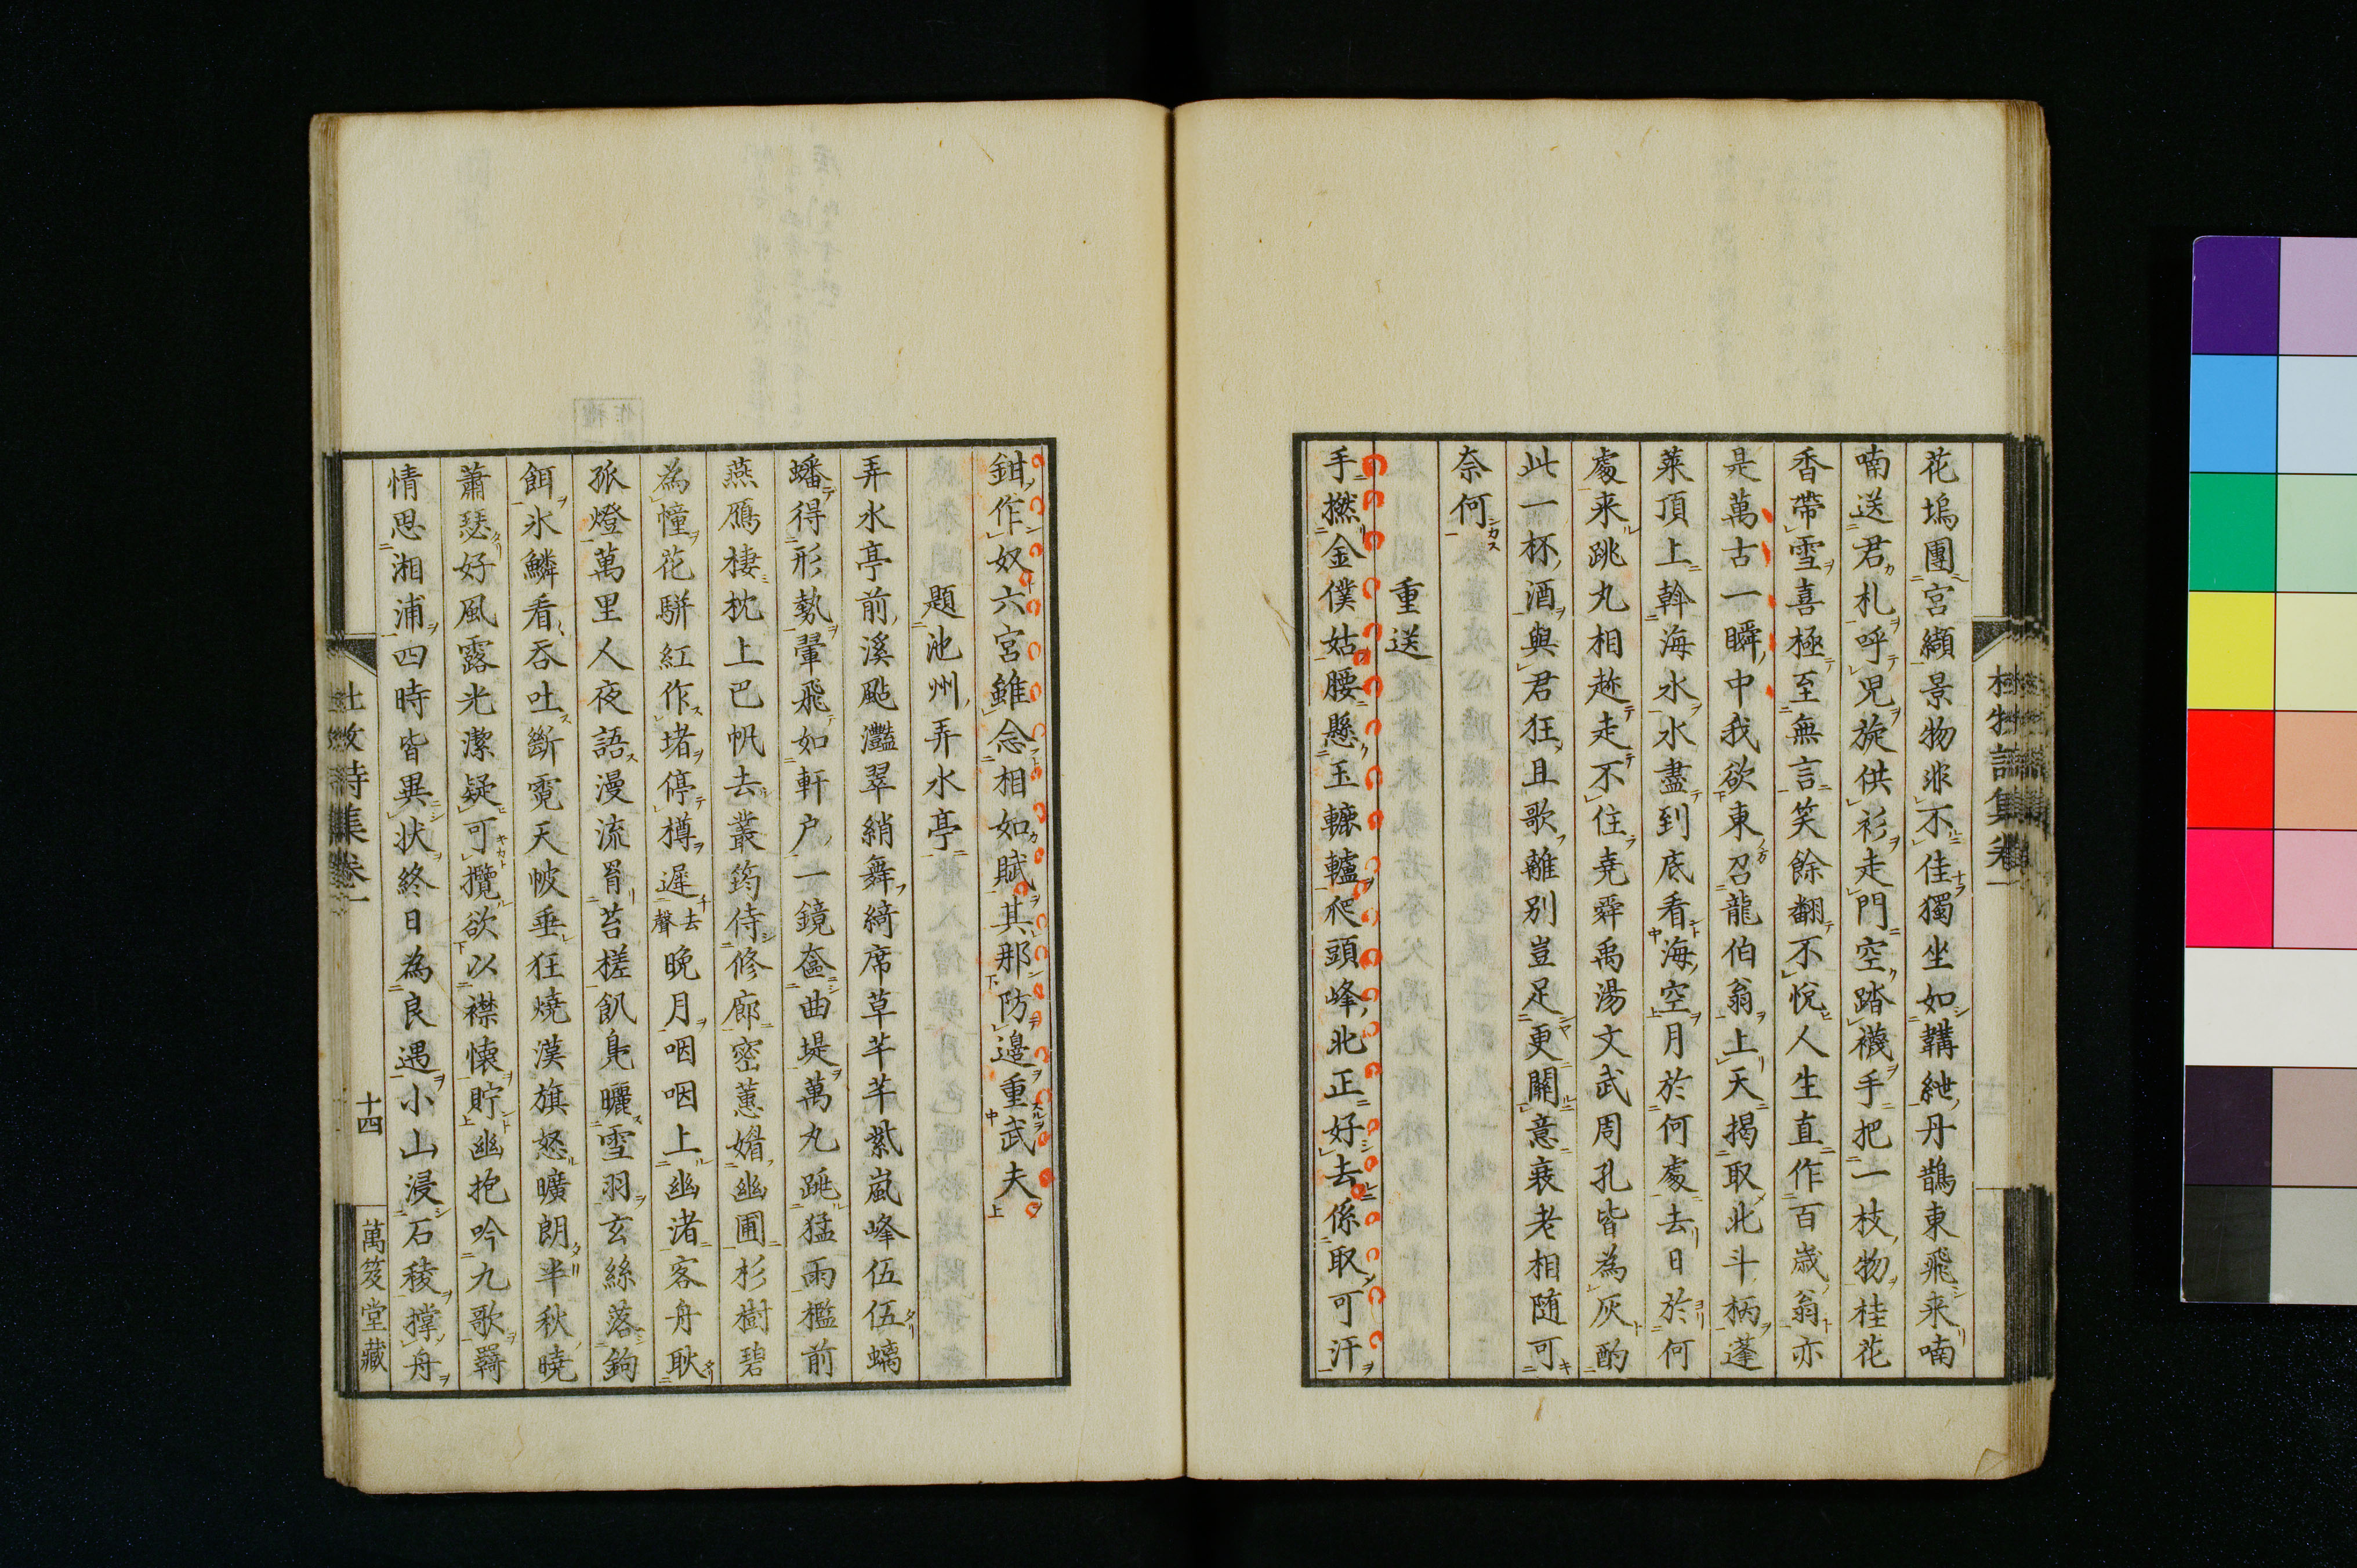 花塢團宮纈景物非不佳獨坐如韝紲丹鵲東飛来喃
喃送君札呼兒旋供衫走門空踏襪手把一枝物桂花
香帶雪喜極至無言笑餘翻不悅人生直作百歳翁亦
是萬古一瞬中我欲東召龍伯翁上天揭取北斗柄蓬
莱頂上斡海水水盡到底看海空月於何處去日於何
處来跳丸相趂走不住堯舜禹湯文武周孔皆為灰酌
此一杯酒與君狂且歌離別豈足更關意衰老相随可
奈何
重送
手撚金僕姑腰懸玉轆轤爬頭峰北正好去係取可汗
鉗作奴六宮雖念相如賦其那防邊重武夫
題池州弄水亭
弄水亭前溪颭灩翠綃舞綺席草芊芊紫嵐峰伍伍螭
蟠得形勢翬飛如軒户一鏡奩曲堤萬丸跳猛雨檻前
燕鴈棲枕上巴帆去叢筠侍修廊密蕙媚幽圃杉樹碧
為幢花駢紅作堵停樽遲去聲晩月咽咽上幽渚客舟耿
孤燈萬里人夜語漫流罥苔槎飢鳧曬雪羽玄絲落鉤
餌氷鱗看吞吐斷霓天帔垂狂燒漢旗怒曠朗半秋曉
蕭瑟好風露光潔疑可攬欲以襟懐貯幽抱吟九歌羇
情思湘浦四時皆異状終日為良遇小山浸石稜撑舟
詩集卷一
十四
萬笈堂藏